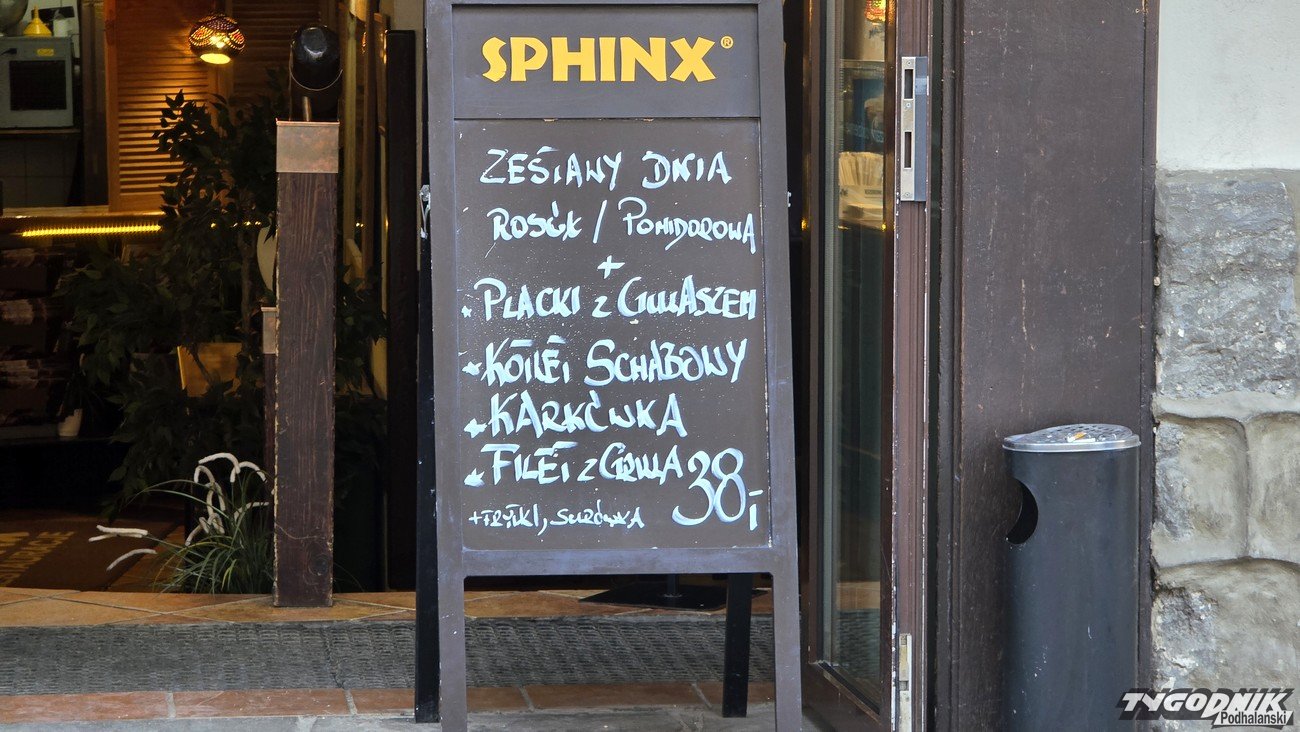 SPHINX®
ZESTAWY DNIA
ROSÓŁ / POMIDOROWA
+
* PLACKI Z GULASZEM
* KOTLET SCHABOWY
* KARKÓWKA
* FILET Z GRILLA 38,-
+ FRYTKI, SURÓWKA
TYGODNIK
Podhalański